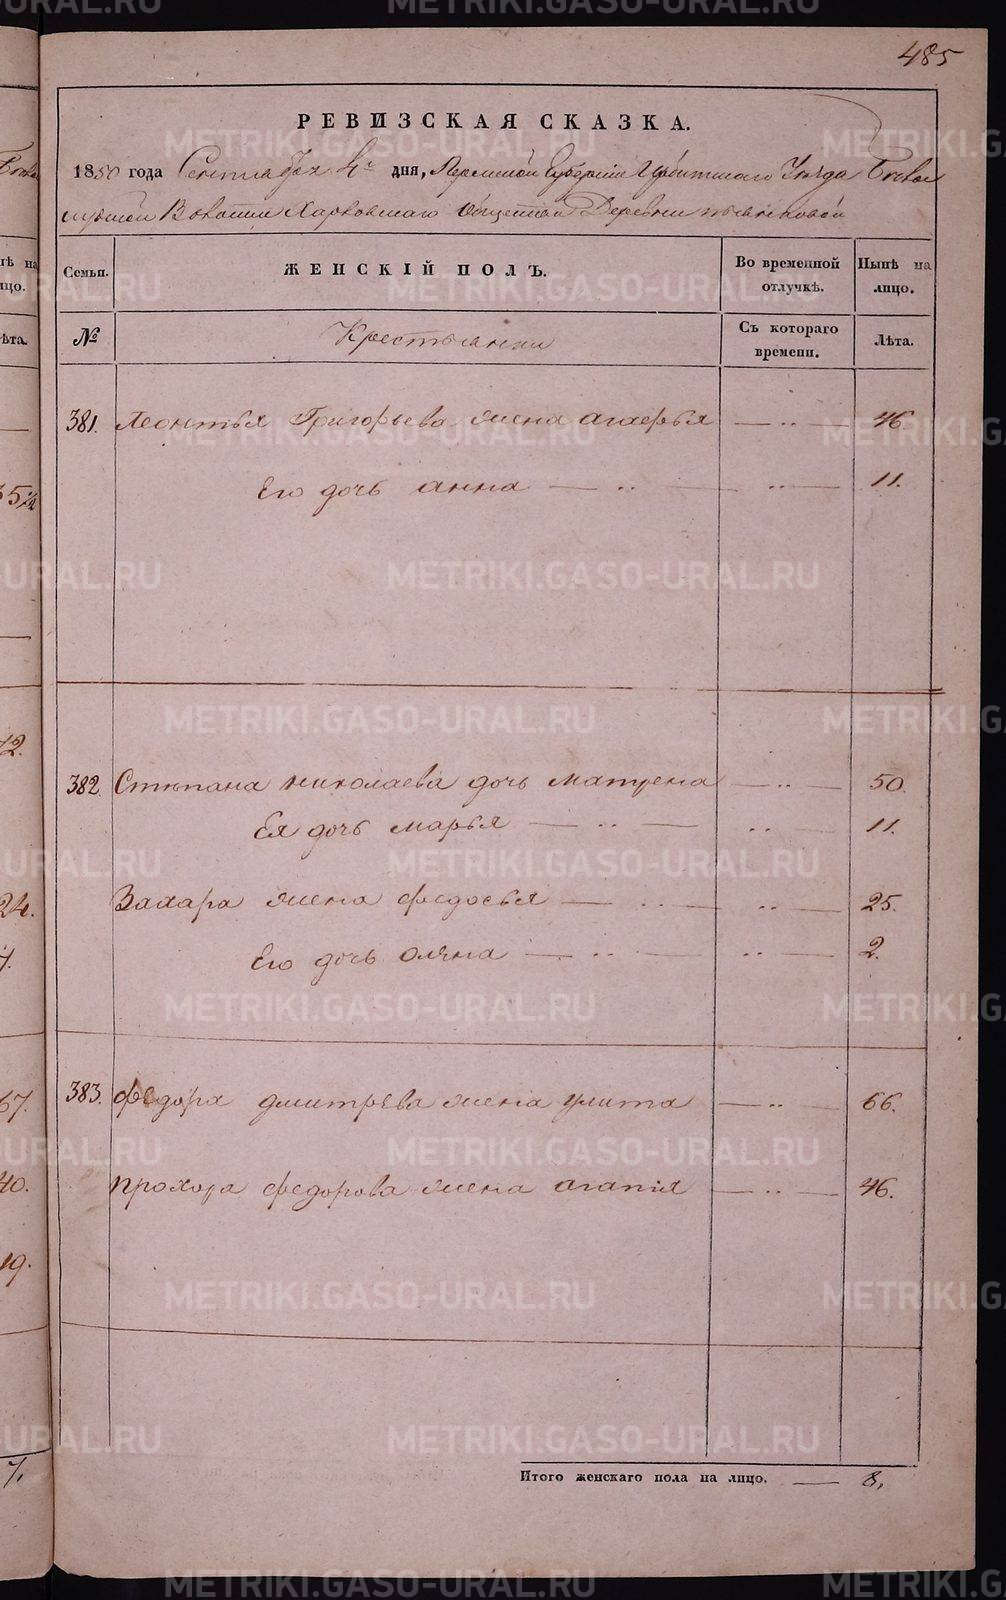 485
РЕВИЗСКАЯ СКАЗКА.
1850 года Сентября 4го дня, Пермской Губернии Ирбитскаго Уѣзда
Волости Харловскаго общества Деревни
Семьи. ЖЕНСКІЙ ПОЛЪ. Во временной отлучкѣ. Нынѣ на лицо.
№ Крестьянки Съ котораго времени. Лѣта.
381. Леонтья Григорьева жена агафья — „ — 46.
Его дочь анна — „ — „ — 11.
382. Степана николаева дочь матрена — „ — 50.
Ея дочь марья — „ — „ — 11.
Захара жена федосья — „ — „ — 25.
Его дочь оляна — „ — „ — 2.
383. федора дмитрева жена улита — „ — 66.
прохора федорова жена агапія — „ — 46.
Итого женскаго пола на лицо. — 8,
ѣта.
72.
24.
7.
67.
40.
19.
7.
METRIKI.GASO-URAL.RU